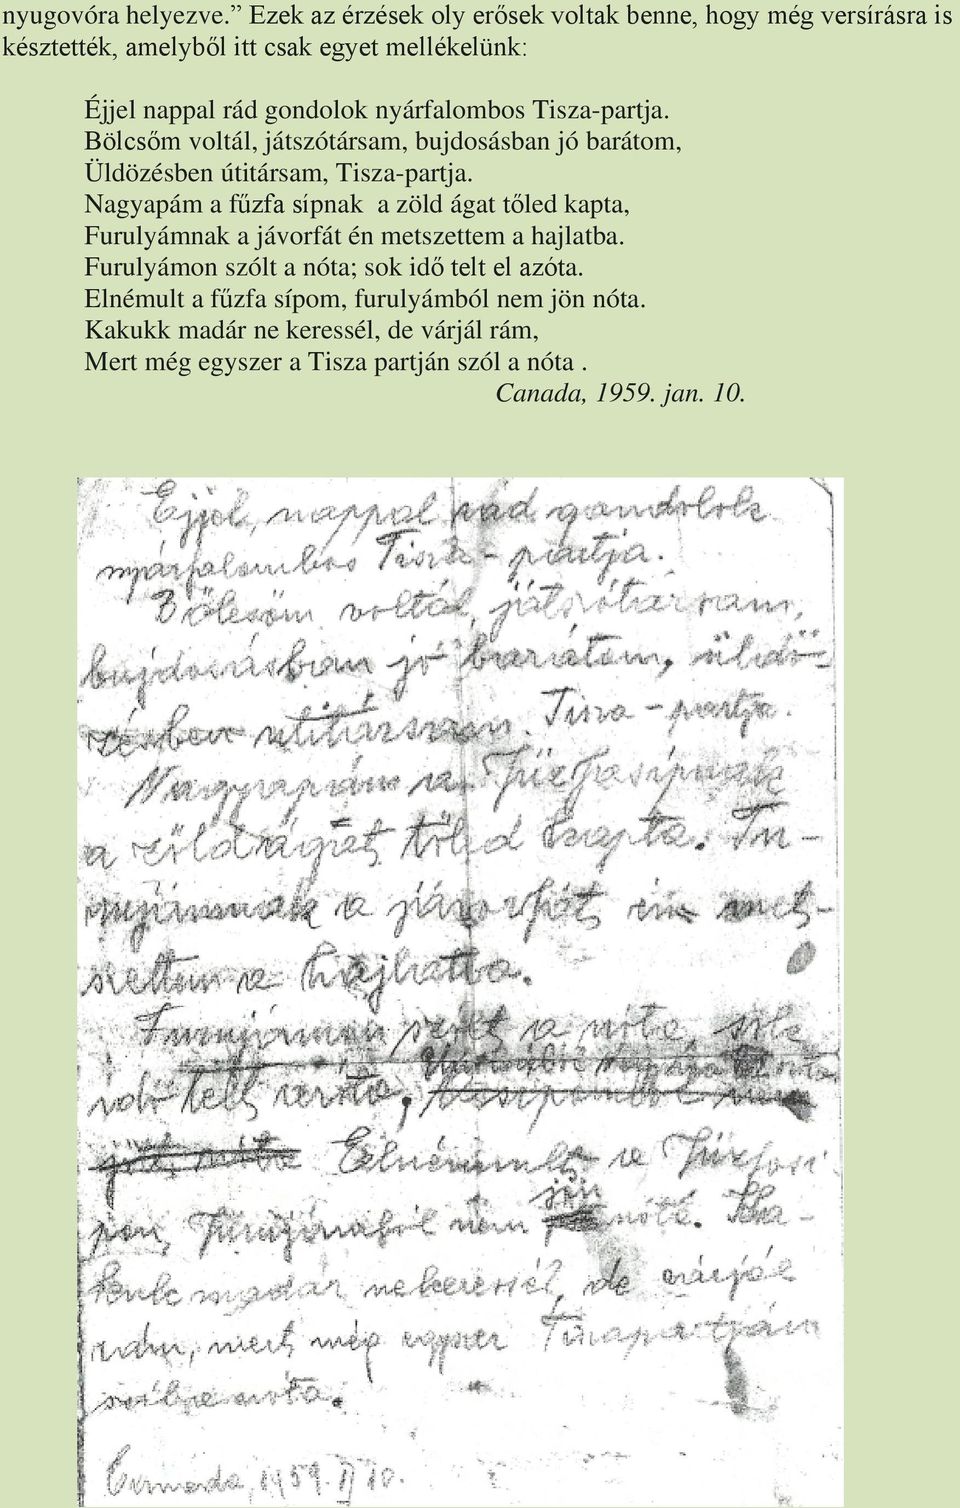 nyugovóra helyezve.” Ezek az érzések oly erősek voltak benne, hogy még versírásra is
késztették, amelyből itt csak egyet mellékelünk:
Éjjel nappal rád gondolok nyárfalombos Tisza-partja.
Bölcsőm voltál, játszótársam, bujdosásban jó barátom,
Üldözésben útitársam, Tisza-partja.
Nagyapám a fűzfa sípnak a zöld ágat tőled kapta,
Furulyámnak a jávorfát én metszettem a hajlatba.
Furulyámon szólt a nóta; sok idő telt el azóta.
Elnémult a fűzfa sípom, furulyámból nem jön nóta.
Kakukk madár ne keressél, de várjál rám,
Mert még egyszer a Tisza partján szól a nóta .
Canada, 1959. jan. 10.
Éjjel, nappal rád gondolok
nyárfalombos Tisza-partja.
Bölcsöm voltál, játszótársam,
bujdosásban jó barátom, üldö-
zésben utitársam. Tisza-partja.
Nagyapám a Fűzfasípnak
a zöld ágat tőled kapta. Fu-
rujámnak a jávorfát, én met-
szettem a hajlatba.
Furujámon szólt a nóta, sok
idő telt azóta,
Elnémult a Fűzfasi-
pom, Furujámból nem jön nóta. Ka-
kuk madár ne keressél, de várjál
rám, mert még egyszer Tiszapartján
szól a nóta.
Canada, 1959. II 10.